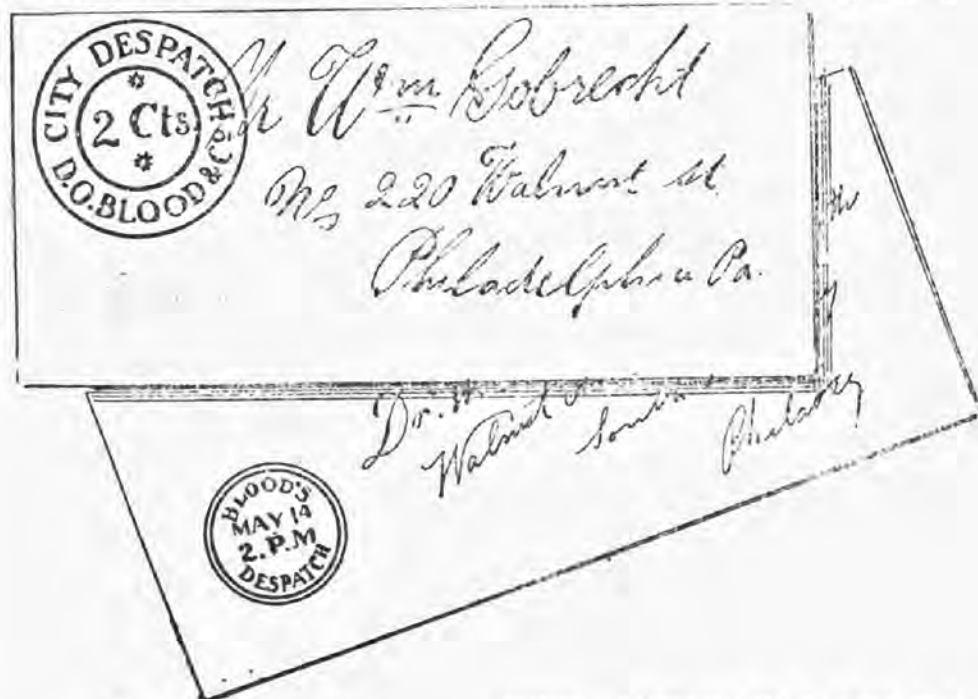 CITY DESPATCH
2 Cts.
D.O.BLOOD & Co
Mr Wm Gobrecht
No 220 Walnut st
Philadelphia Pa.
Dr.
Walnut
Philada
BLOOD'S
MAY 14
2.P.M
DESPATCH